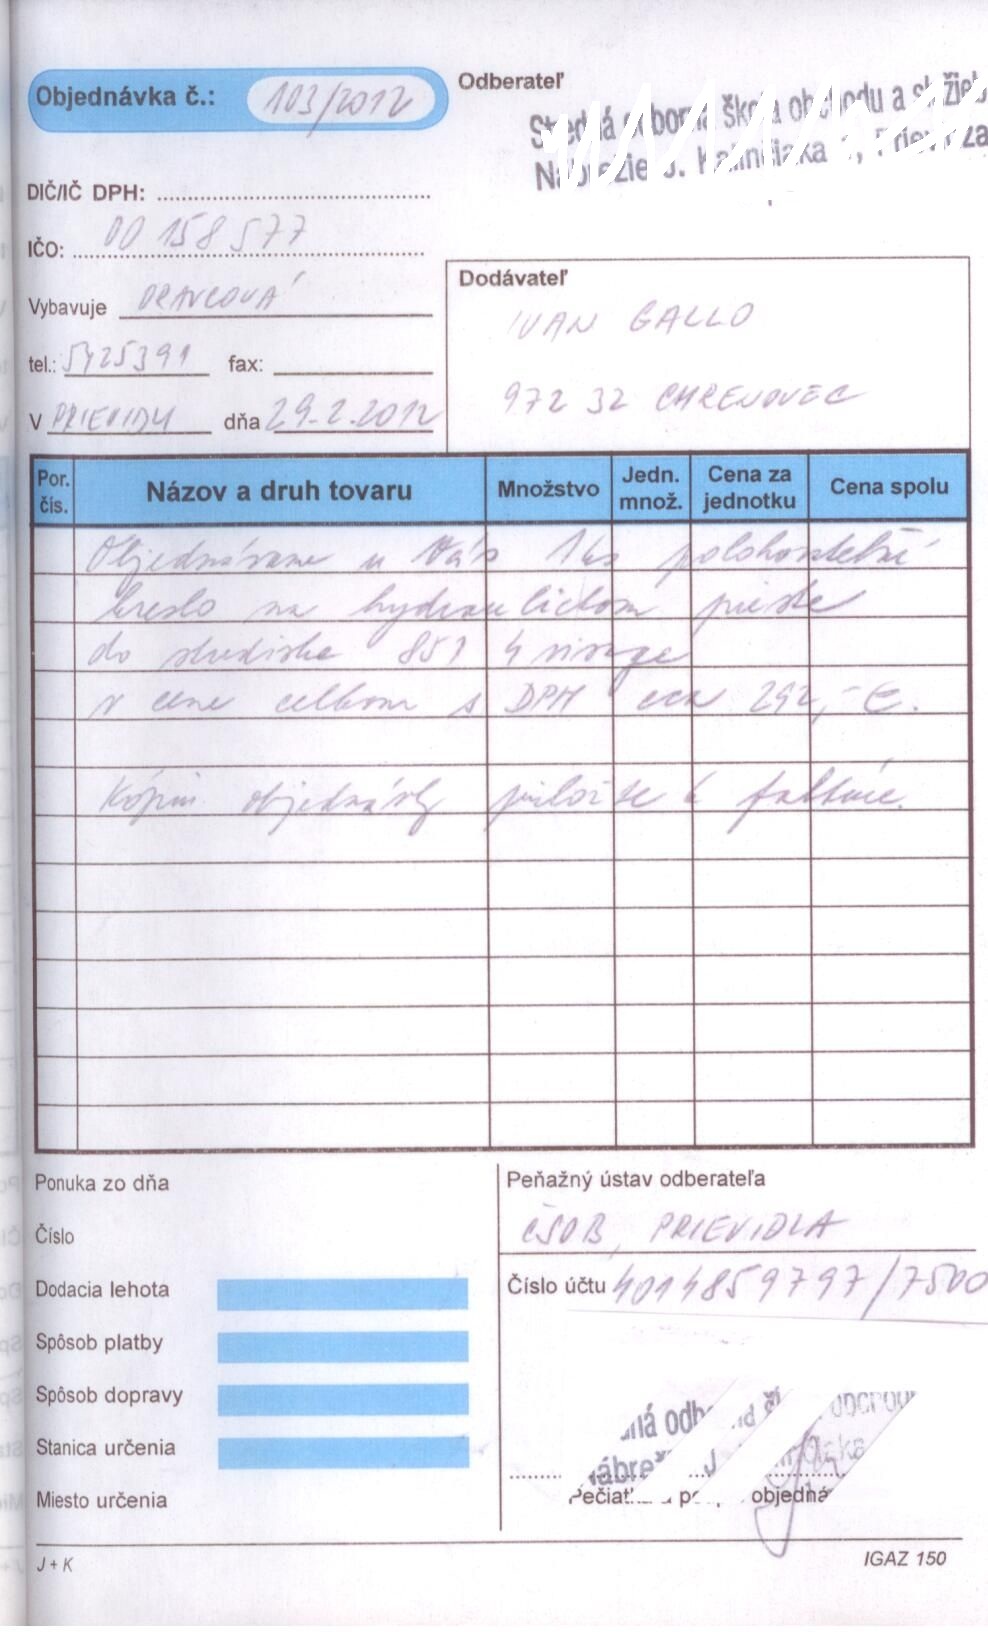 Objednávka č.: 103/2012
Odberateľ
Stredná odborná škola obchodu a služieb
Nábrežie J. Kalinčiaka Prievidza
DIČ/IČ DPH:
IČO: 00158577
Vybavuje ORAVCOVÁ
tel.: 5425391 fax:
V PRIEVIDZI dňa 29.2.2012
Dodávateľ
IVAN GALLO
972 32 CHRENOVEC
Por. čís. Názov a druh tovaru Množstvo Jedn. množ. Cena za jednotku Cena spolu
Objednávame u Vás 1ks polohovateľné
kreslo na hydraulickom pieste
do strediska 853 4 visage
v cene celkom s DPH cca 292,-€.
Kópiu objednávky priložte k faktúre.
Ponuka zo dňa
Číslo
Dodacia lehota
Spôsob platby
Spôsob dopravy
Stanica určenia
Miesto určenia
Peňažný ústav odberateľa
ČSOB, PRIEVIDZA
Číslo účtu 4014859797/7500
J + K
IGAZ 150